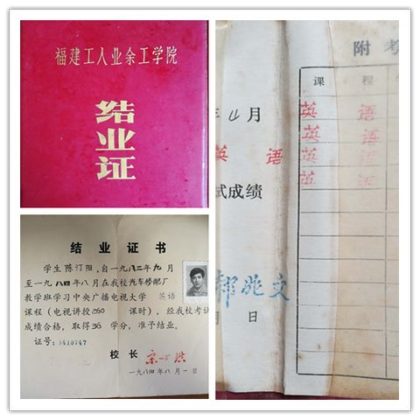 福建工人业余工学院
结业证
结业证书
学生陈汀阳，自一九八二年九月
至一九八四年八月在我校汽车修配厂
教学班学习中央广播电视大学 英语
课程（电视讲授260 课时），经我校考试
成绩合格，取得36 学分，准予结业。
校长
一九八四年八月一日
年 月
英 语
试成绩
文
日
附考
课 程
英 语
英 语
英 语
英 语